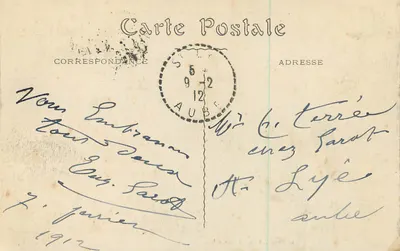 Carte Postale
CORRESPONDANCE
ADRESSE
5
9-2
12
AUBE
Vous Embrassons
tous deux
Eug. Sarot
7 février
1912
Mr C. Terrée
chez Sarot
à Lyé
aube